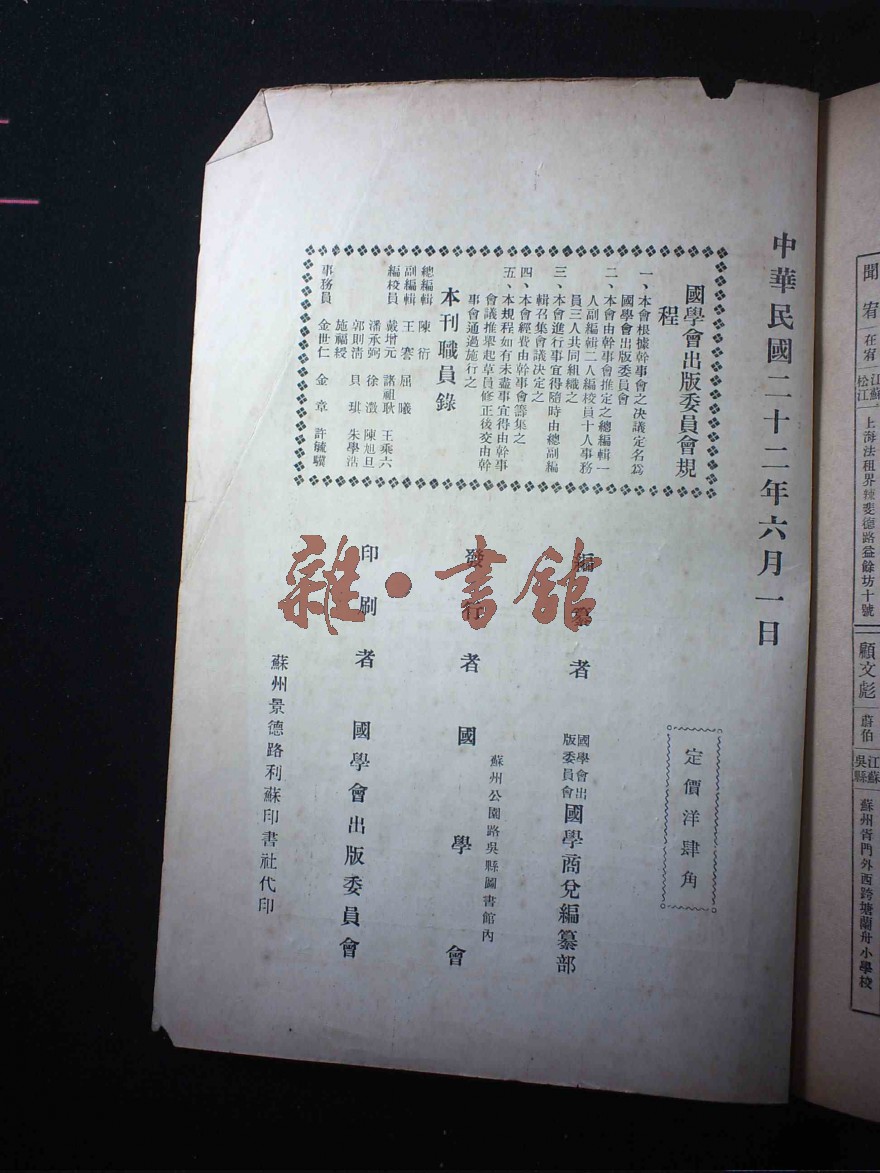 中華民國二十二年六月一日
國學會出版委員會規
程
一、本會根據幹事會之決議定名爲
國學會出版委員會
二、本會由幹事會推定之總編輯一
人副編輯二人編校員十人事務
員三人共同組織之
三、本會進行事宜得隨時由總副編
輯召集會議決定之
四、本會經費由幹事會籌集之
五、本規程如有未盡事宜得由幹事
會議推舉起草員修正後交由幹
事會通過施行之
本刊職員錄
總編輯 陳 衍
副編輯 王 謇 屈 曦
編校員 戴增元 諸祖耿 王乘六
潘承弼 徐 澐 陳旭旦
郭則清 貝 琪 朱學浩
施福綬
事務員 金世仁 金 章 許毓驥
定價洋肆角
編纂者 國學會出版委員會 國學商兌編纂部
蘇州公園路吳縣圖書館內
發行者 國學會
印刷者 國學會出版委員會
蘇州景德路利蘇印書社代印
雜·書館
聞宥 在宥 江蘇松江 上海法租界辣斐德路益餘坊十號
顧文彪 蔚伯 江蘇吳縣 蘇州胥門外西跨塘蘭舟小學校